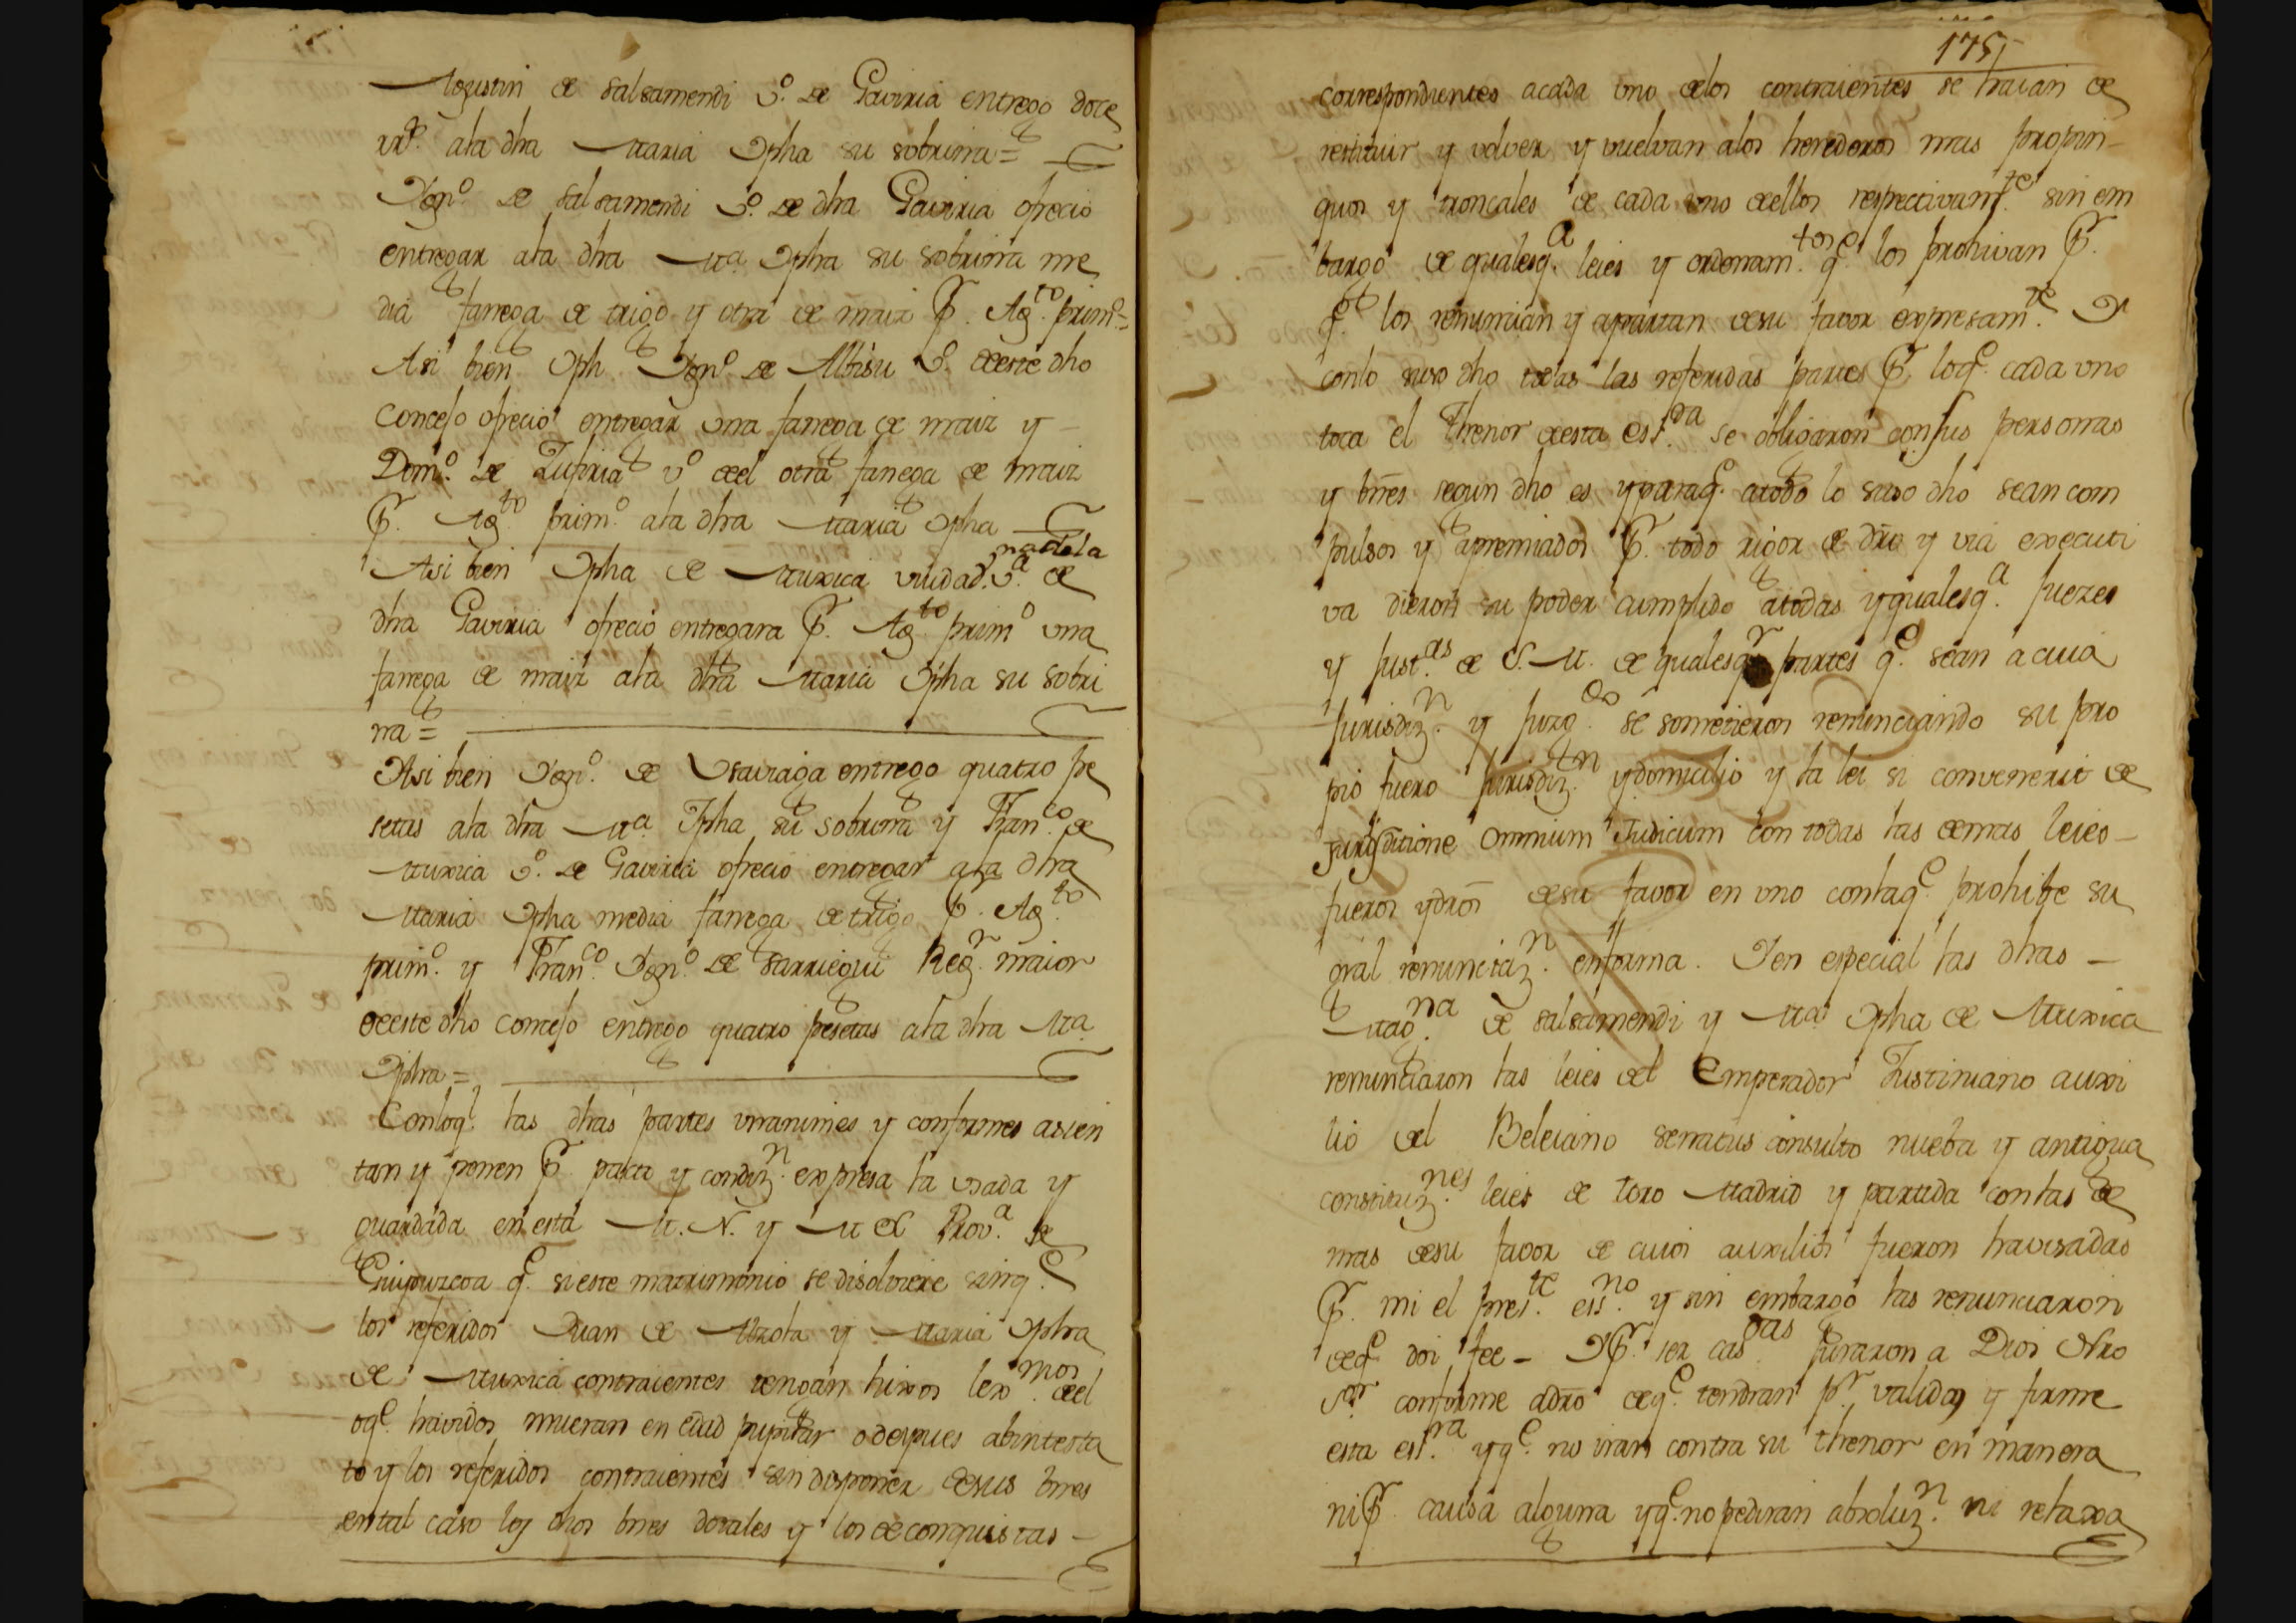 Agustin de salsamendi v.º de Gaviria entrego doce
rr.s ala dha Maria Jpha su sobrina =
Ygn.º de salsamendi v.º de dha Gaviria ofrecio
entregar ala dha M.a Jpha su sobrina me
dia fanega de trigo y otra de maiz Pr. Ag.to prim.º =
Asi bien Jph Ygn.º de Albisu v.º deeste dho
Concejo ofrecio entregar una fanega de maiz y
Dom.º de Zufiria v.º deel otra fanega de maiz
Pr. Ag.to prim.º ala dha Maria Jpha
nadela
Asi bien Jpha de Muxica viuda v.a de
dha Gaviria ofrecio entregara Pr. Ag.to prim.º una
fanega de maiz ala dha Maria Jpha su sobri
na =
Asi bien Ygn.º de Usauiaga entrego quatro pe
setas ala dha M.a Jpha su sobrina y Fran.co de
Muxica v.º de Gaviria ofrecio entregar ala dha
Maria Jpha media fanega de trigo Pr. Ag.to
prim.º y Fran.co Ygn.º de sarriegui Reg.r maior
deeste dho Concejo entrego quatro pesetas ala dha M.a
Jpha =
Conloq.l las dhas partes unanimes y conformes asien
tan y ponen Pr. pacto y condiz.n expresa la usada y
guardada en esta M. N. y M. L. Prov.a de
Guipuzcoa q.e sieste matrimonio se disolviere sinq.e
los referidos Juan de Alzola y Maria Jpha
de Muxica contraientes tengan hixos lex.mos deel
oq.e havidos mueran en edad pupilar o despues abintesta
to y los referidos contraientes sin disponer desus bnes
ental caso los dhos bnes dotales y los de conquistas
175
correspondientes acada uno delos contraientes se haian de
restituir y volver y vuelvan alos herederos mas propin
quos y troncales de cada uno deellos respectivam.te sin em
bargo de qualesq.a leies y ordenam.tos q.e los prohivan Pr.
q.e los renuncian y apartan desu favor expresam.te Y
conlo suso dho todas las referidas partes Pr. loq.e cada uno
toca el thenor deesta ess.ra se obligaron consus personas
y bnes segun dho es yparaq.e atodo lo suso dho sean com
pulsos y apremiados Pr. todo rigor de dro y via executi
va dieron su poder cumplido atodas yqualesq.a juezes
y just.as de S. M. de qualesq.r partes q.e sean a cuia
jurisdiz.n y juzg.do se sometieron renunciando su pro
pio fuero jurisdiz.n ydomicilio y la lei si convenerit de
jurisditione omnium Judicum con todas las demas leies
fueros ydros desu favor en uno conlaq.e prohibe su
gral renunciaz.n enforma. Y en especial las dhas
Mag.na de salsamendi y M.a Jpha de Muxica
renunciaron las leies del Emperador Justiniano auxi
lio del Beleiano senatus consulto nueba y antigua
constituz.nes leies de toro Madrid y partida conlas de
mas desu favor de cuios auxilios fueron havisadas
Pr. mi el pres.te ess.no y sin embargo las renunciaron
deq.e doi fee - Y Pr. ser cas.das juraron a Dios Nro
S.or conforme adro deq.e tendran p.r valida y firme
esta ess.ra yq.e no iran contra su thenor en manera
ni Pr. causa alguna yq.e no pediran absoluz.n ni relaxa